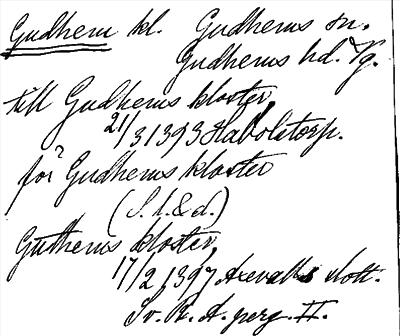 Gudhem kl. Gudhems sn.
Gudhems hd. Vg.
till Gudhems kloster
21/3 1393 Habolstorp.
för Gudhems kloster
(S. h. & d.)
Guthems kloster
17/2 1397 Axevalls slott.
Sv. R. A. perg. II.